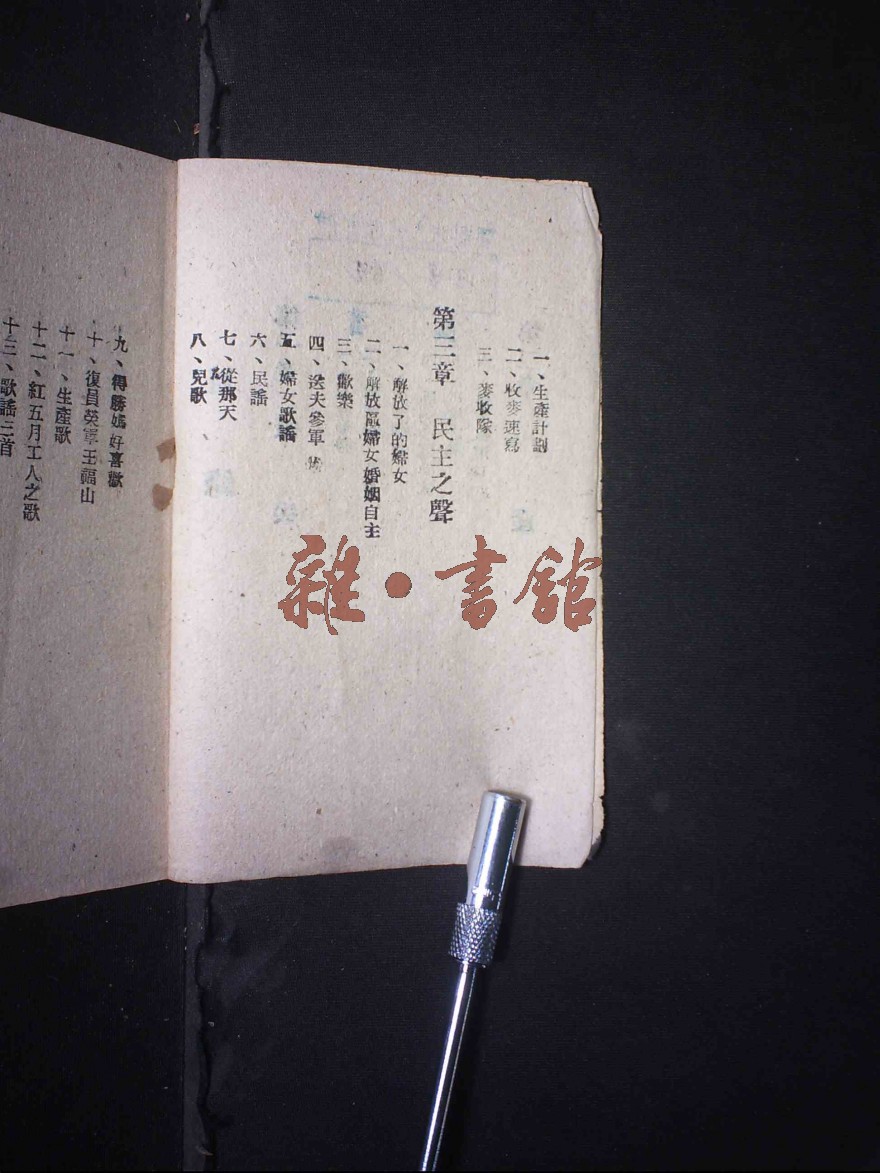 一、生產計劃
二、收麥速寫
三、麥收隊
第三章　民主之聲
一、解放了的婦女
二、解放區婦女婚姻自主
三、歡樂
四、送夫參軍
五、婦女歌謠
六、民謠
七、從那天
八、兒歌
九、得勝媽好喜歡
十、復員英軍王福山
十一、生產歌
十二、紅五月工人之歌
十三、歌謠三首
雜·書館